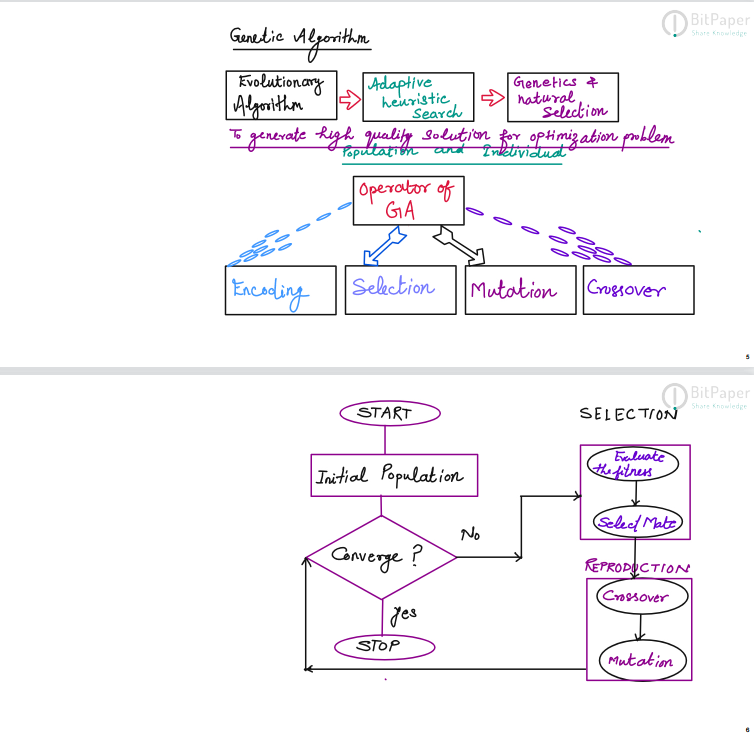 BitPaper
Share Knowledge
Genetic Algorithm
Evolutionary
Algorithm
Adaptive
heuristic
Search
Genetics &
natural
Selection
To generate high quality solution for optimization problem
Population and Individual
Operator of
GA
Encoding
Selection
Mutation
Crossover
5
BitPaper
Share Knowledge
START
SELECTION
Initial Population
Evaluate
the fitness
Select Mate
No
Converge ?
REPRODUCTION
Crossover
Yes
STOP
Mutation
6